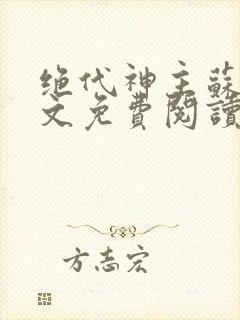 绝代神主蘇
文免費閱讀
方志宏